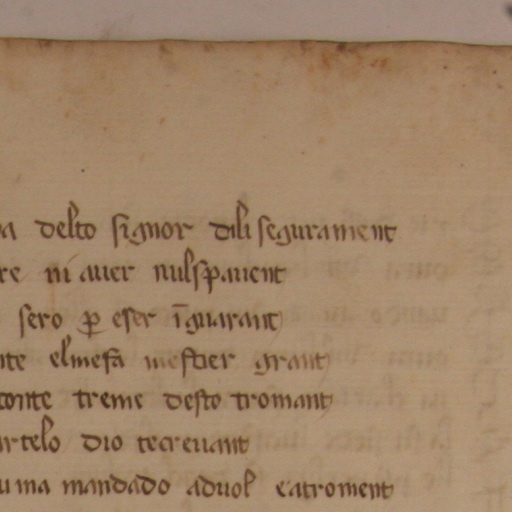 a delto signor dili segurament
re ni auer nulspauent
sero ꝑ eser īguarant
nte elmefa mestier grant
conte treme desto tromant
rtelo dio tecreuant
uma mandado aduol eatroment